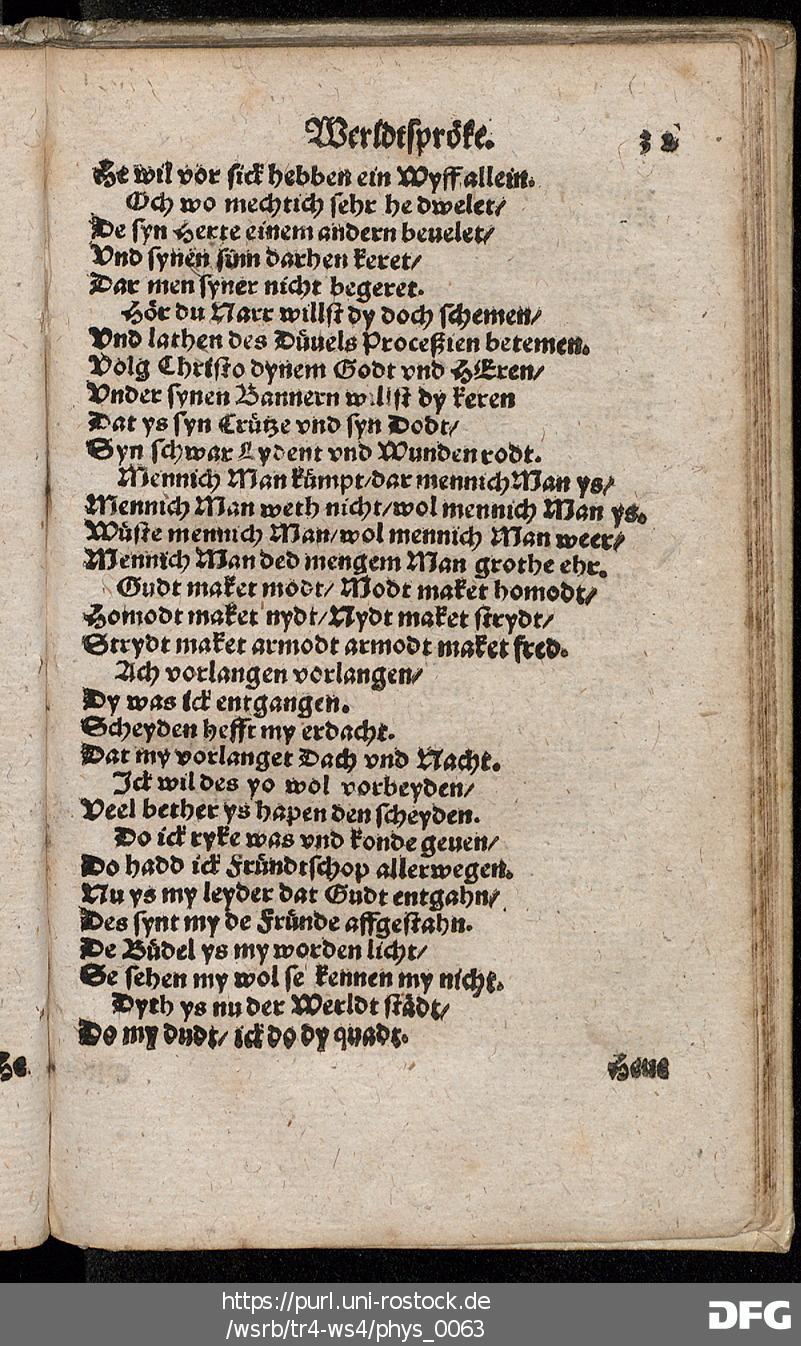 Werldtspröke. 32
He wil vor sick hebben ein Wyff allein.
Och wo mechtich sehr he dwelet/
De syn Herte einem andern beuelet/
Vnd synen sinn darhen keret/
Dar men syner nicht begeret.
Hör du Narr willst dy doch schemen/
Vnd lathen des Düuels Proceßien betemen.
Volg Christo dynem Godt vnd HEren/
Vnder synen Bannern willst dy keren
Dat ys syn Crütze vnd syn Dodt/
Syn schwar Lydent vnd Wunden rodt.
Mennich Man kümpt/dar mennich Man ys/
Mennich Man weth nicht/wol mennich Man ys.
Wüste mennich Man/wol mennich Man weer/
Mennich Man ded mengem Man grothe ehr.
Gudt maket modt/ Modt maket homodt/
Homodt maket nydt/Nydt maket strydt/
Strydt maket armodt armodt maket fred.
Ach vorlangen vorlangen/
Dy was ick entgangen.
Scheyden hefft my erdacht.
Dat my vorlanget Dach vnd Nacht.
Ick wil des yo wol vorbeyden/
Veel bether ys hapen den scheyden.
Do ick ryke was vnd konde geuen/
Do hadd ick Fründtschop allerwegen.
Nu ys my leyder dat Gudt entgahn/
Des synt my de Fründe affgestahn.
De Büdel ys my worden licht/
Se sehen my wol se kennen my nicht.
Dyth ys nu der Werldt städt/
Do my dudt/ ick do dy quadt.
He
Heue
https://purl.uni-rostock.de
/wsrb/tr4-ws4/phys_0063
DFG